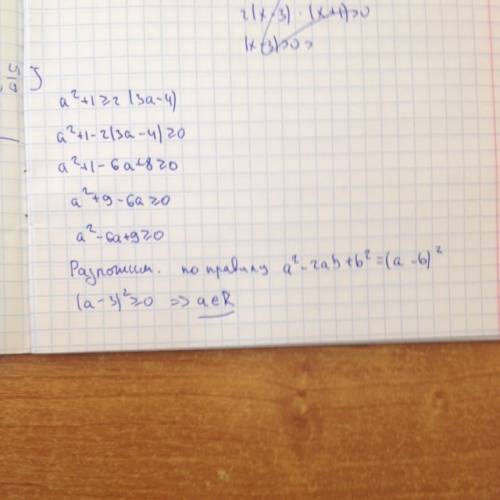 2(x-3) · (x+1)>0
(x-3)>0 >
a²+1≥2(3a-4)
a²+1-2(3a-4)≥0
a²+1-6a+8≥0
a²+9-6a≥0
a²-6a+9≥0
Разложим. по правилу a²-2ab+b²=(a-b)²
(a-3)²≥0 => a∈R